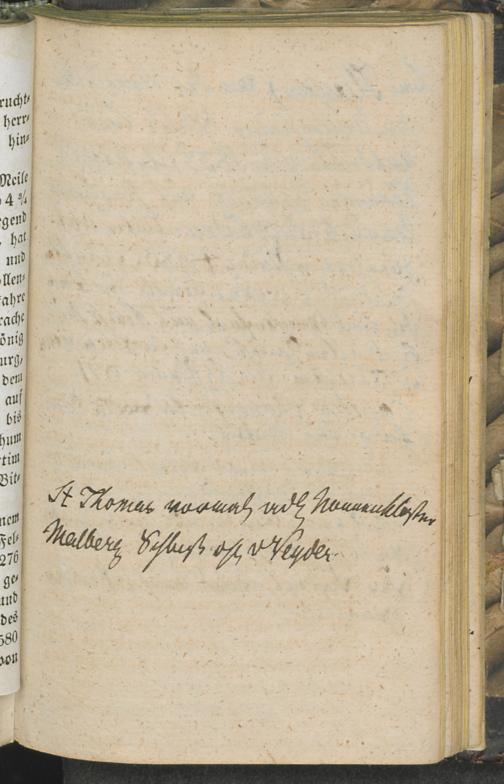 rucht⸗
herr⸗
hin⸗
Meile
4 3/4
egend
hat
und
llen⸗
ahre
rache
önig
urg,
dem
auf
bis
hum
rtim
Bit⸗
nem
Fel⸗
276
ge⸗
und
des
580
von
St Thomas vormals adl Nonnenkloster
Malberg Schloß v Veyder